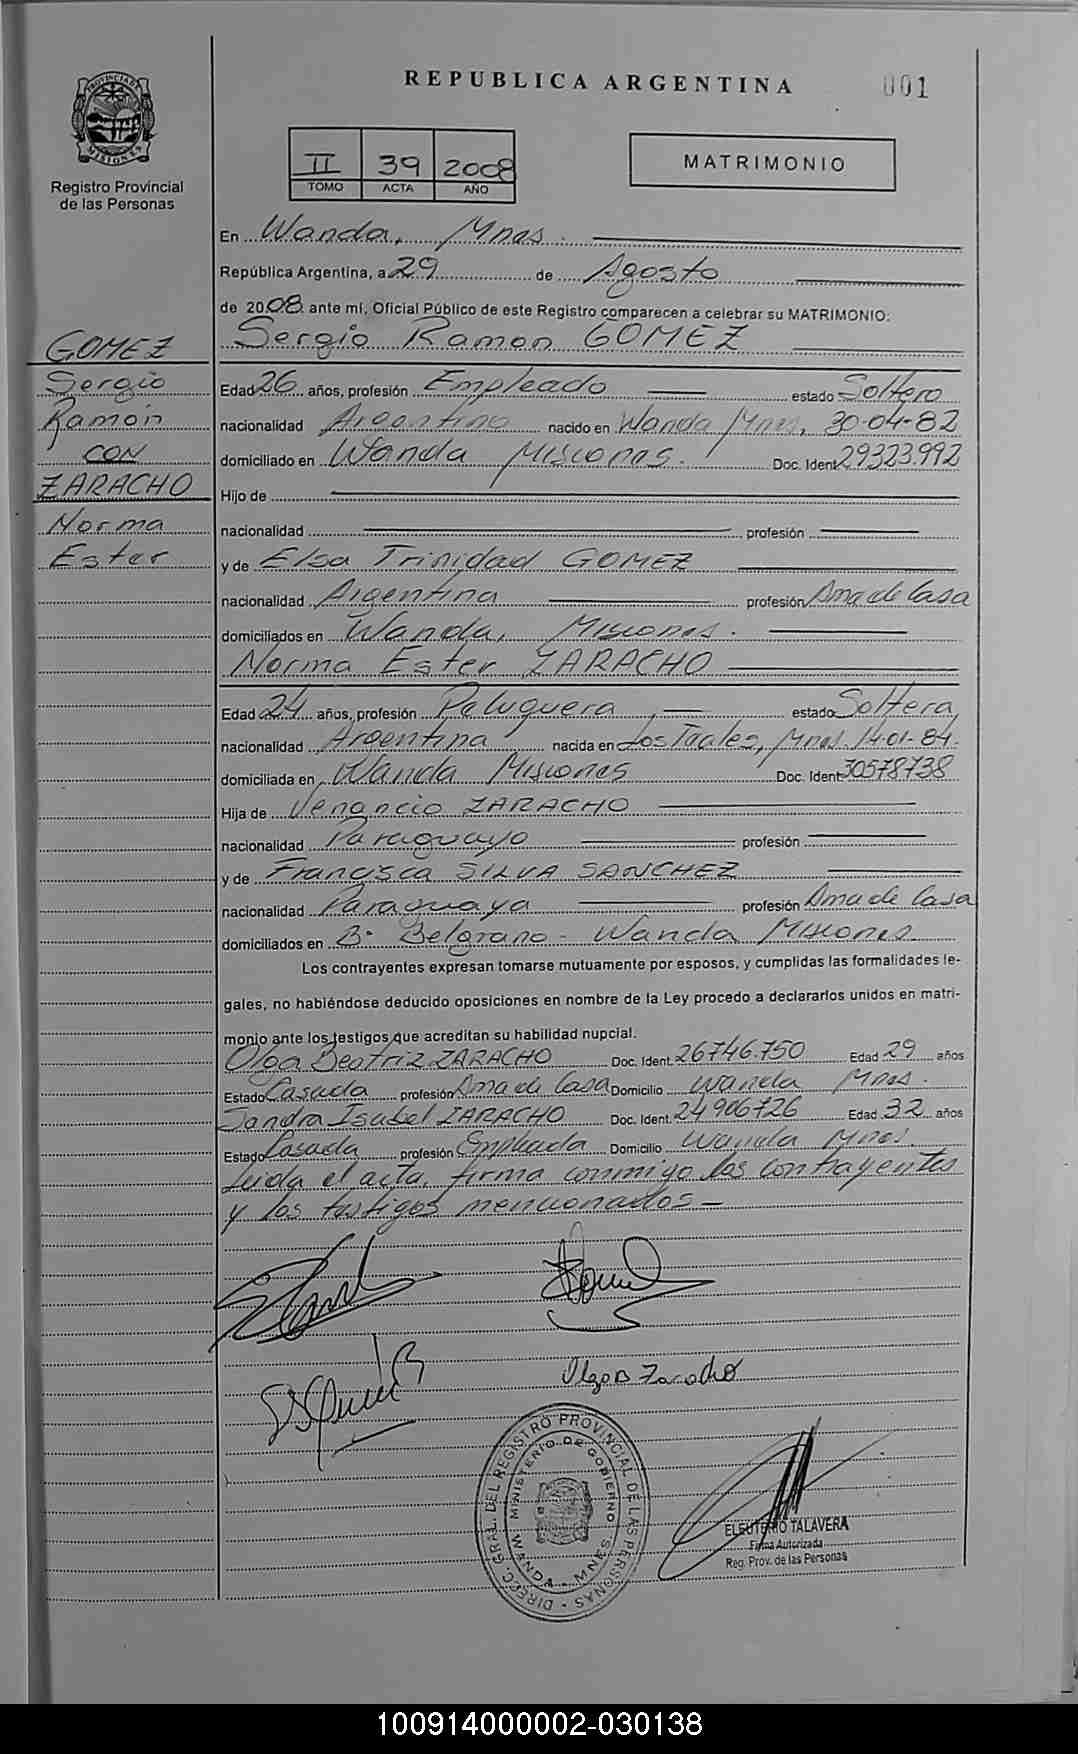 REPUBLICA ARGENTINA
001
PROVINCIA DE MISIONES
Registro Provincial
de las Personas
II 39 2008
TOMO ACTA AÑO
MATRIMONIO
En Wanda, Mnes.
República Argentina, a 29 de Agosto
de 2008 ante mí, Oficial Público de este Registro comparecen a celebrar su MATRIMONIO:
Sergio Ramon GOMEZ
GOMEZ
Sergio
Ramón
CON
ZARACHO
Norma
Ester
Edad 26 años, profesión Empleado estado Soltero
nacionalidad Argentino nacido en Wanda Mnes, 30-04-82
domiciliado en Wanda Misiones. Doc. Ident 29323.992
Hijo de
nacionalidad profesión
y de Elsa Trinidad GOMEZ
nacionalidad Argentina profesión Ama de Casa
domiciliados en Wanda, Misiones.
Norma Ester ZARACHO
Edad 24 años, profesión Peluquera estado Soltera
nacionalidad Argentina nacida en Los Teales, Mnes. 14-01-84.
domiciliada en Wanda Misiones Doc. Ident 30578738
Hija de Venancio ZARACHO
nacionalidad Paraguayo profesión
y de Francisca SILVA SANCHEZ
nacionalidad Paraguaya profesión Ama de Casa
domiciliados en Bº Belgrano - Wanda Misiones.
Los contrayentes expresan tomarse mutuamente por esposos, y cumplidas las formalidades le-
gales, no habiéndose deducido oposiciones en nombre de la Ley procedo a declararlos unidos en matri-
monio ante los testigos que acreditan su habilidad nupcial.
Olga Beatriz ZARACHO Doc. Ident. 26746.750 Edad 29 años
Estado Casada profesión Ama de Casa Domicilio Wanda Mnes.
Sandra Isabel ZARACHO Doc. Ident. 24906726 Edad 32 años
Estado Casada profesión Empleada Domicilio Wanda Mnes.
Leida el acta, firma conmigo los contrayentes
y los testigos mencionados -
Olga B Zaracho
DIREC. GRAL. DEL REGISTRO PROVINCIAL DE LAS PERSONAS
MINISTERIO DE GOBIERNO
WANDA - MNES
ELEUTERIO TALAVERA
Firma Autorizada
Reg. Prov. de las Personas
100914000002-030138